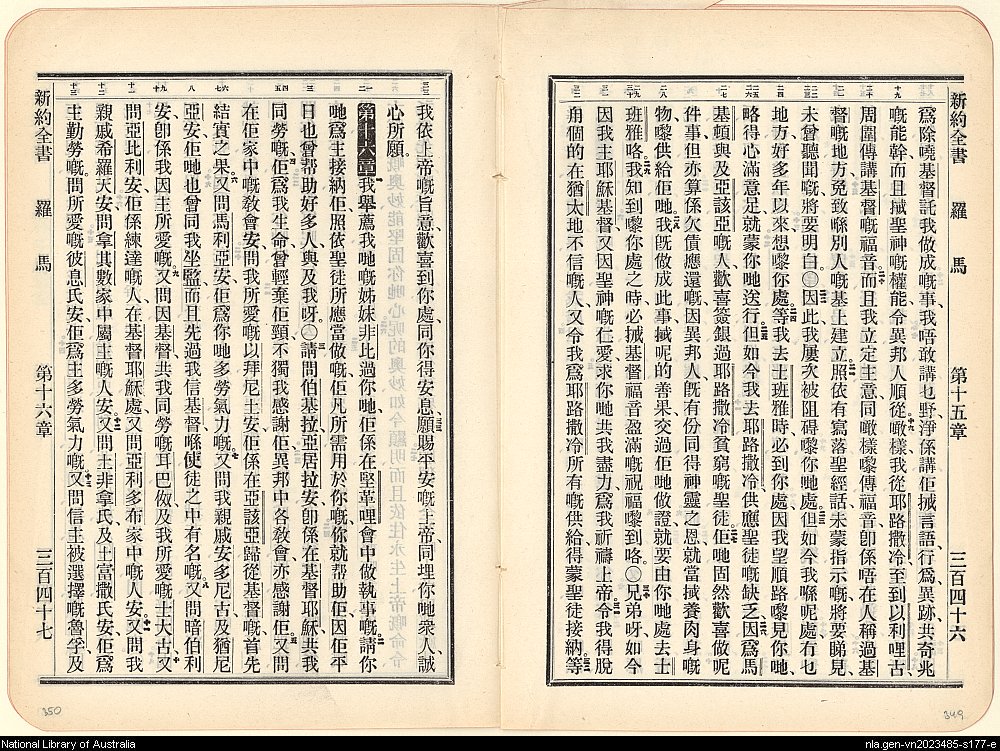 新約全書 羅馬 第十五章 三百四十六
爲除嘵基督託我做成嘅事、我唔敢講乜野、淨係講佢㨢言語行爲異跡、共奇兆
嘅能幹、而且㨢聖神嘅權能、令異邦人順從、噉樣我從耶路撒冷至到以利哩古
周圍傳講基督嘅福音、而且我立定主意、同噉樣嚟傳福音、卽係唔在人稱過基
督嘅地方、免致喺別人嘅基上建立、照依有寫落聖經話、未蒙指示嘅將要睇見、
未曾聽聞嘅將要明白。○因此我屢次被阻碍嚟你哋處、但如今我喺呢處冇也
地方、好多年以來想嚟你處、等我去士班雅時必到你處、因我望順路嚟見你哋、
略得心滿意足、就蒙你哋送行、但如今我去耶路撒冷、供應聖徒嘅缺乏、因爲馬
基頓與及亞該亞嘅人、歡喜簽銀過耶路撒冷、貧窮嘅聖徒、佢哋固然歡喜做呢
件事、但亦算係欠債應還嘅、因異邦人旣有份同得神靈之恩、就當㨢養肉身嘅
物嚟供給佢哋、我旣做成此事、㨢呢的善果交過佢哋做證、就要由你哋處去士
班雅咯、我知到嚟你處之時、必㨢基督福音盈滿嘅祝福嚟到咯。○兄弟呀、如今
因我主耶穌基督、又因聖神嘅仁愛、求你哋共我盡力、爲我祈禱上帝、令我得脫
用個的在猶太地不信嘅人、又令我爲耶路撒冷所有嘅供給、得蒙聖徒接納、等
349
新約全書 羅馬 第十六章 三百四十七
我依上帝嘅旨意、歡喜到你處、同你得安息、願賜平安嘅上帝、同埋你哋衆人、誠
心所願。
第十六章 我舉薦我哋嘅姊妹非比過你哋、佢係在堅革哩會中做執事嘅、請你
哋爲主接納佢、照依聖徒所應當做嘅、佢凡所需用於你嘅、你就帮助佢、因佢平
日也曾帮助好多人、與及我呀。○請問伯基拉亞居拉安、卽係在基督耶穌共我
同勞嘅、佢爲我生命、曾輕棄佢頸、不獨我感謝佢、異邦中各敎會、亦感謝佢、又問
在佢家中嘅敎會安、問我所愛嘅以拜尼土安、佢係在亞該亞歸從基督嘅、首先
結實之果、又問馬利亞安、佢爲你哋多勞氣力嘅、又問我親戚安多尼古、及猶尼
亞安、佢哋也曾同我坐監、而且先過我信基督、喺使徒之中有名嘅、又問暗伯利
安、卽係我因主所愛嘅、又問因基督共我同勞嘅耳巴俶、及我所愛嘅士大古、又
問亞比利安、佢係練達嘅人、在基督耶穌處、又問亞利多布家中嘅人安、又問我
親戚希羅天安、問拿其數家中屬主嘅人安、又問土非拿氏、及土富撒氏安、佢爲
主勤勞嘅、問所愛嘅彼息氏安、佢爲主多勞氣力嘅、又問信主被選擇嘅魯孚、及
350
National Library of Australia
nla.gen-vn2023485-s177-e